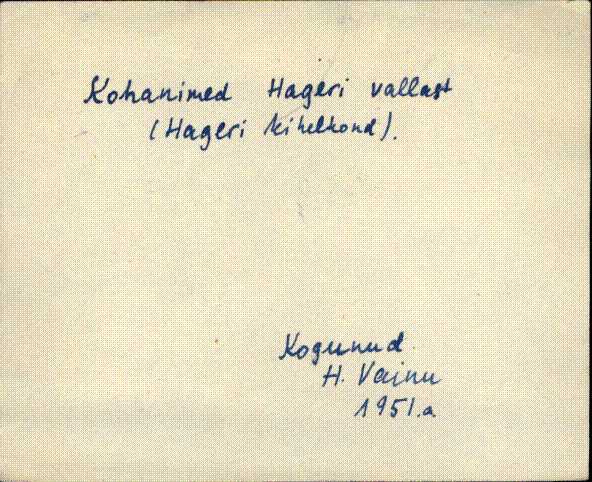 Kohanimed Hageri vallast
(Hageri kihelkond).
Kogunud
H. Vainu
1951.a